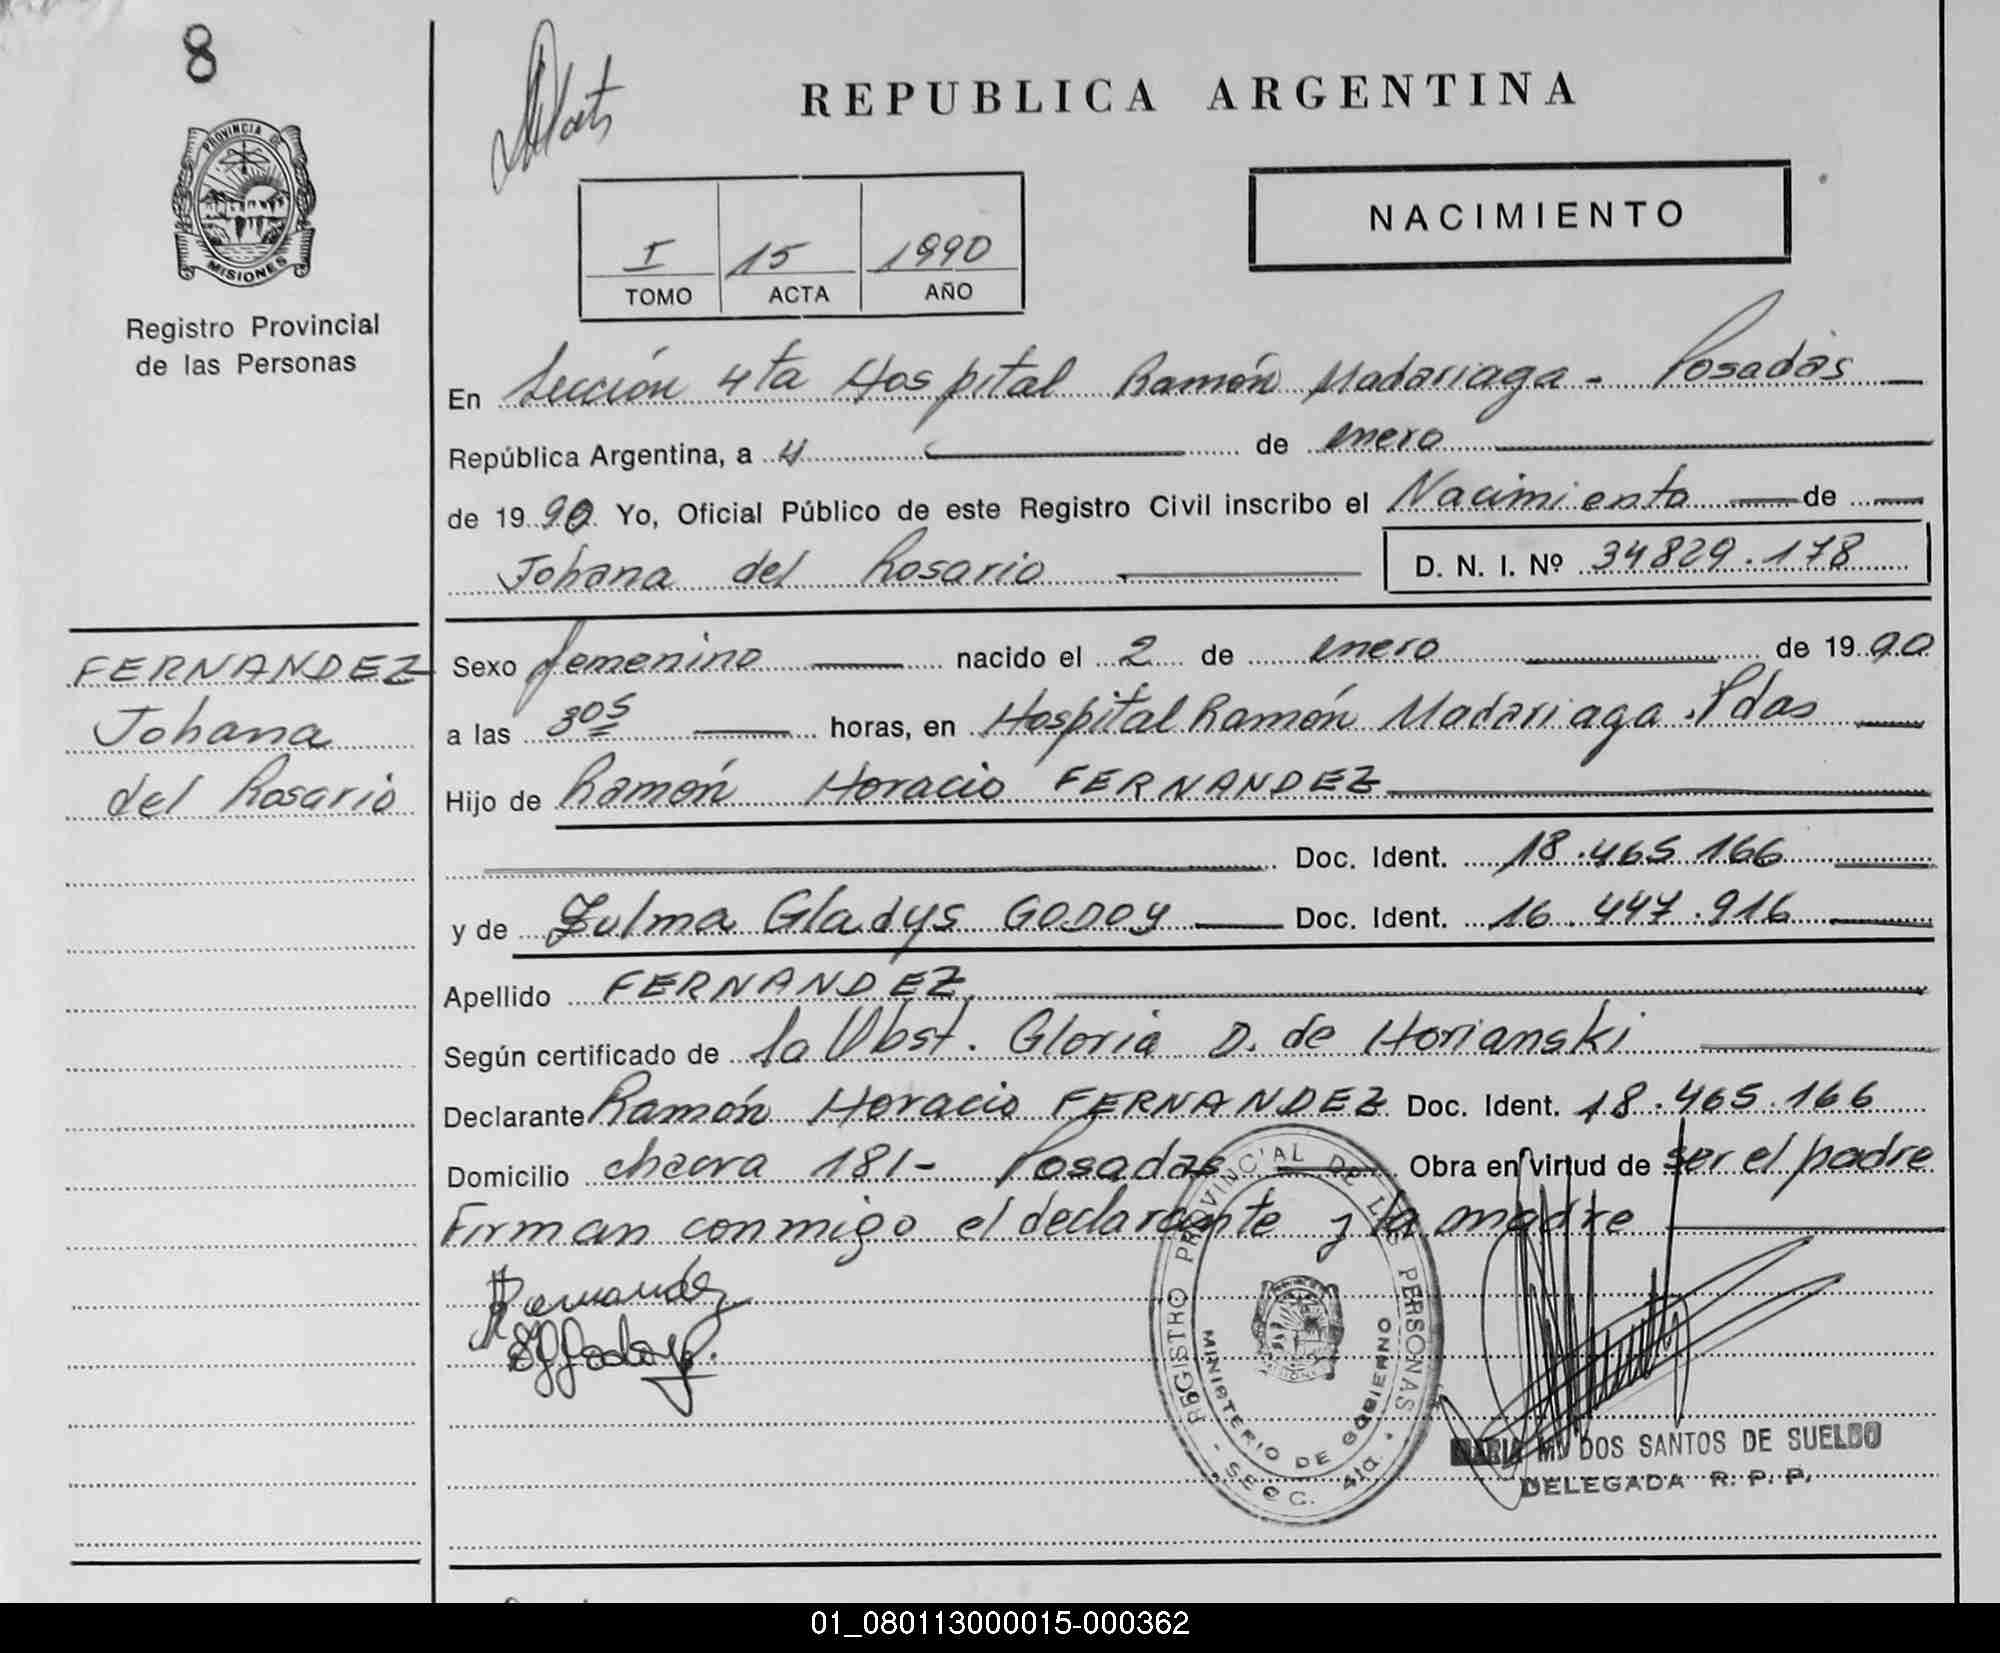 8
REPUBLICA ARGENTINA
PROVINCIA DE MISIONES
NACIMIENTO
I 15 1990
TOMO ACTA AÑO
Registro Provincial
de las Personas
En Sección 4ta Hospital Ramón Madariaga - Posadas
República Argentina, a 4 de enero
de 1990 Yo, Oficial Público de este Registro Civil inscribo el Nacimiento de
Johana del Rosario D. N. I. Nº 34829.178
FERNANDEZ
Johana
del Rosario
Sexo femenino nacido el 2 de enero de 1990
a las 305 horas, en Hospital Ramón Madariaga. Pdas
Hijo de Ramón Horacio FERNANDEZ
Doc. Ident. 18.465 166
y de Zulma Gladys GODOY Doc. Ident. 16.447.916
Apellido FERNANDEZ
Según certificado de la Obst. Gloria D. de Horianski
Declarante Ramón Horacio FERNANDEZ Doc. Ident. 18.465.166
Domicilio chacra 181- Posadas Obra en virtud de ser el padre
Firman conmigo el declarante y la madre
REGISTRO PROVINCIAL DE LAS PERSONAS
MINISTERIO DE GOBIERNO
- SECC. 4ta. -
MARIA M. DOS SANTOS DE SUELDO
DELEGADA R. P. P.
01_080113000015-000362